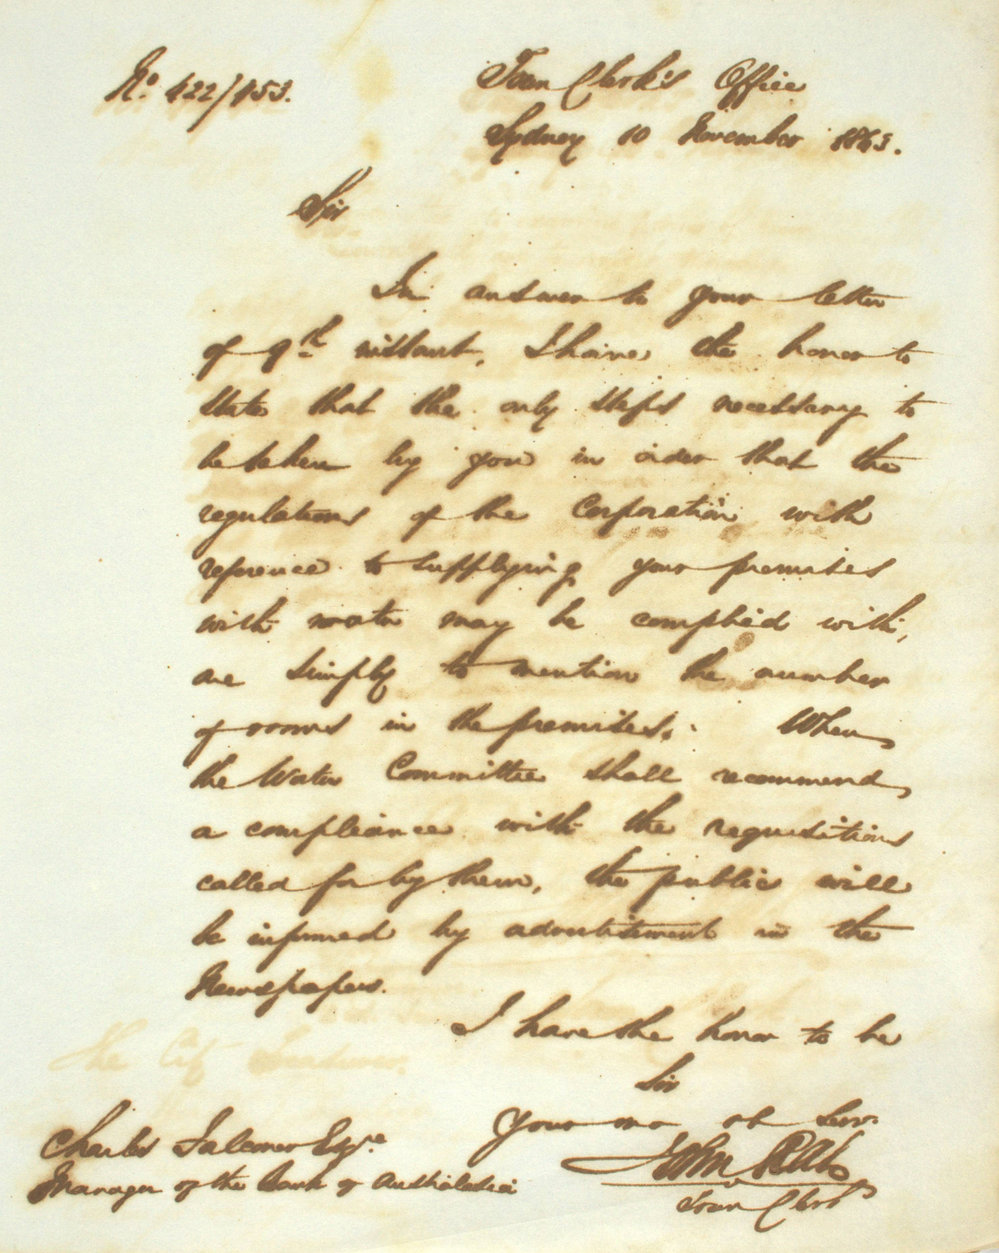 No. 422/153.
Town Clerk's Office
Sydney 10 November 1853.
Sir
In answer to your letter
of 9th instant, I have the honor to
state that the only steps necessary to
be taken by you in order that the
regulations of the Corporation with
reference to supplying your premises
with water may be complied with,
are simply to mention the number
of rooms in the premises. When
the Water Committee shall recommend
a compliance with the requisitions
called for by them, the public will
be informed by advertisement in the
Newspapers.
I have the honor to be
Sir
Your mo ob Serv.
John
Town Clerk
Charles Falconer Esqre
Manager of the Bank of Australasia
The City